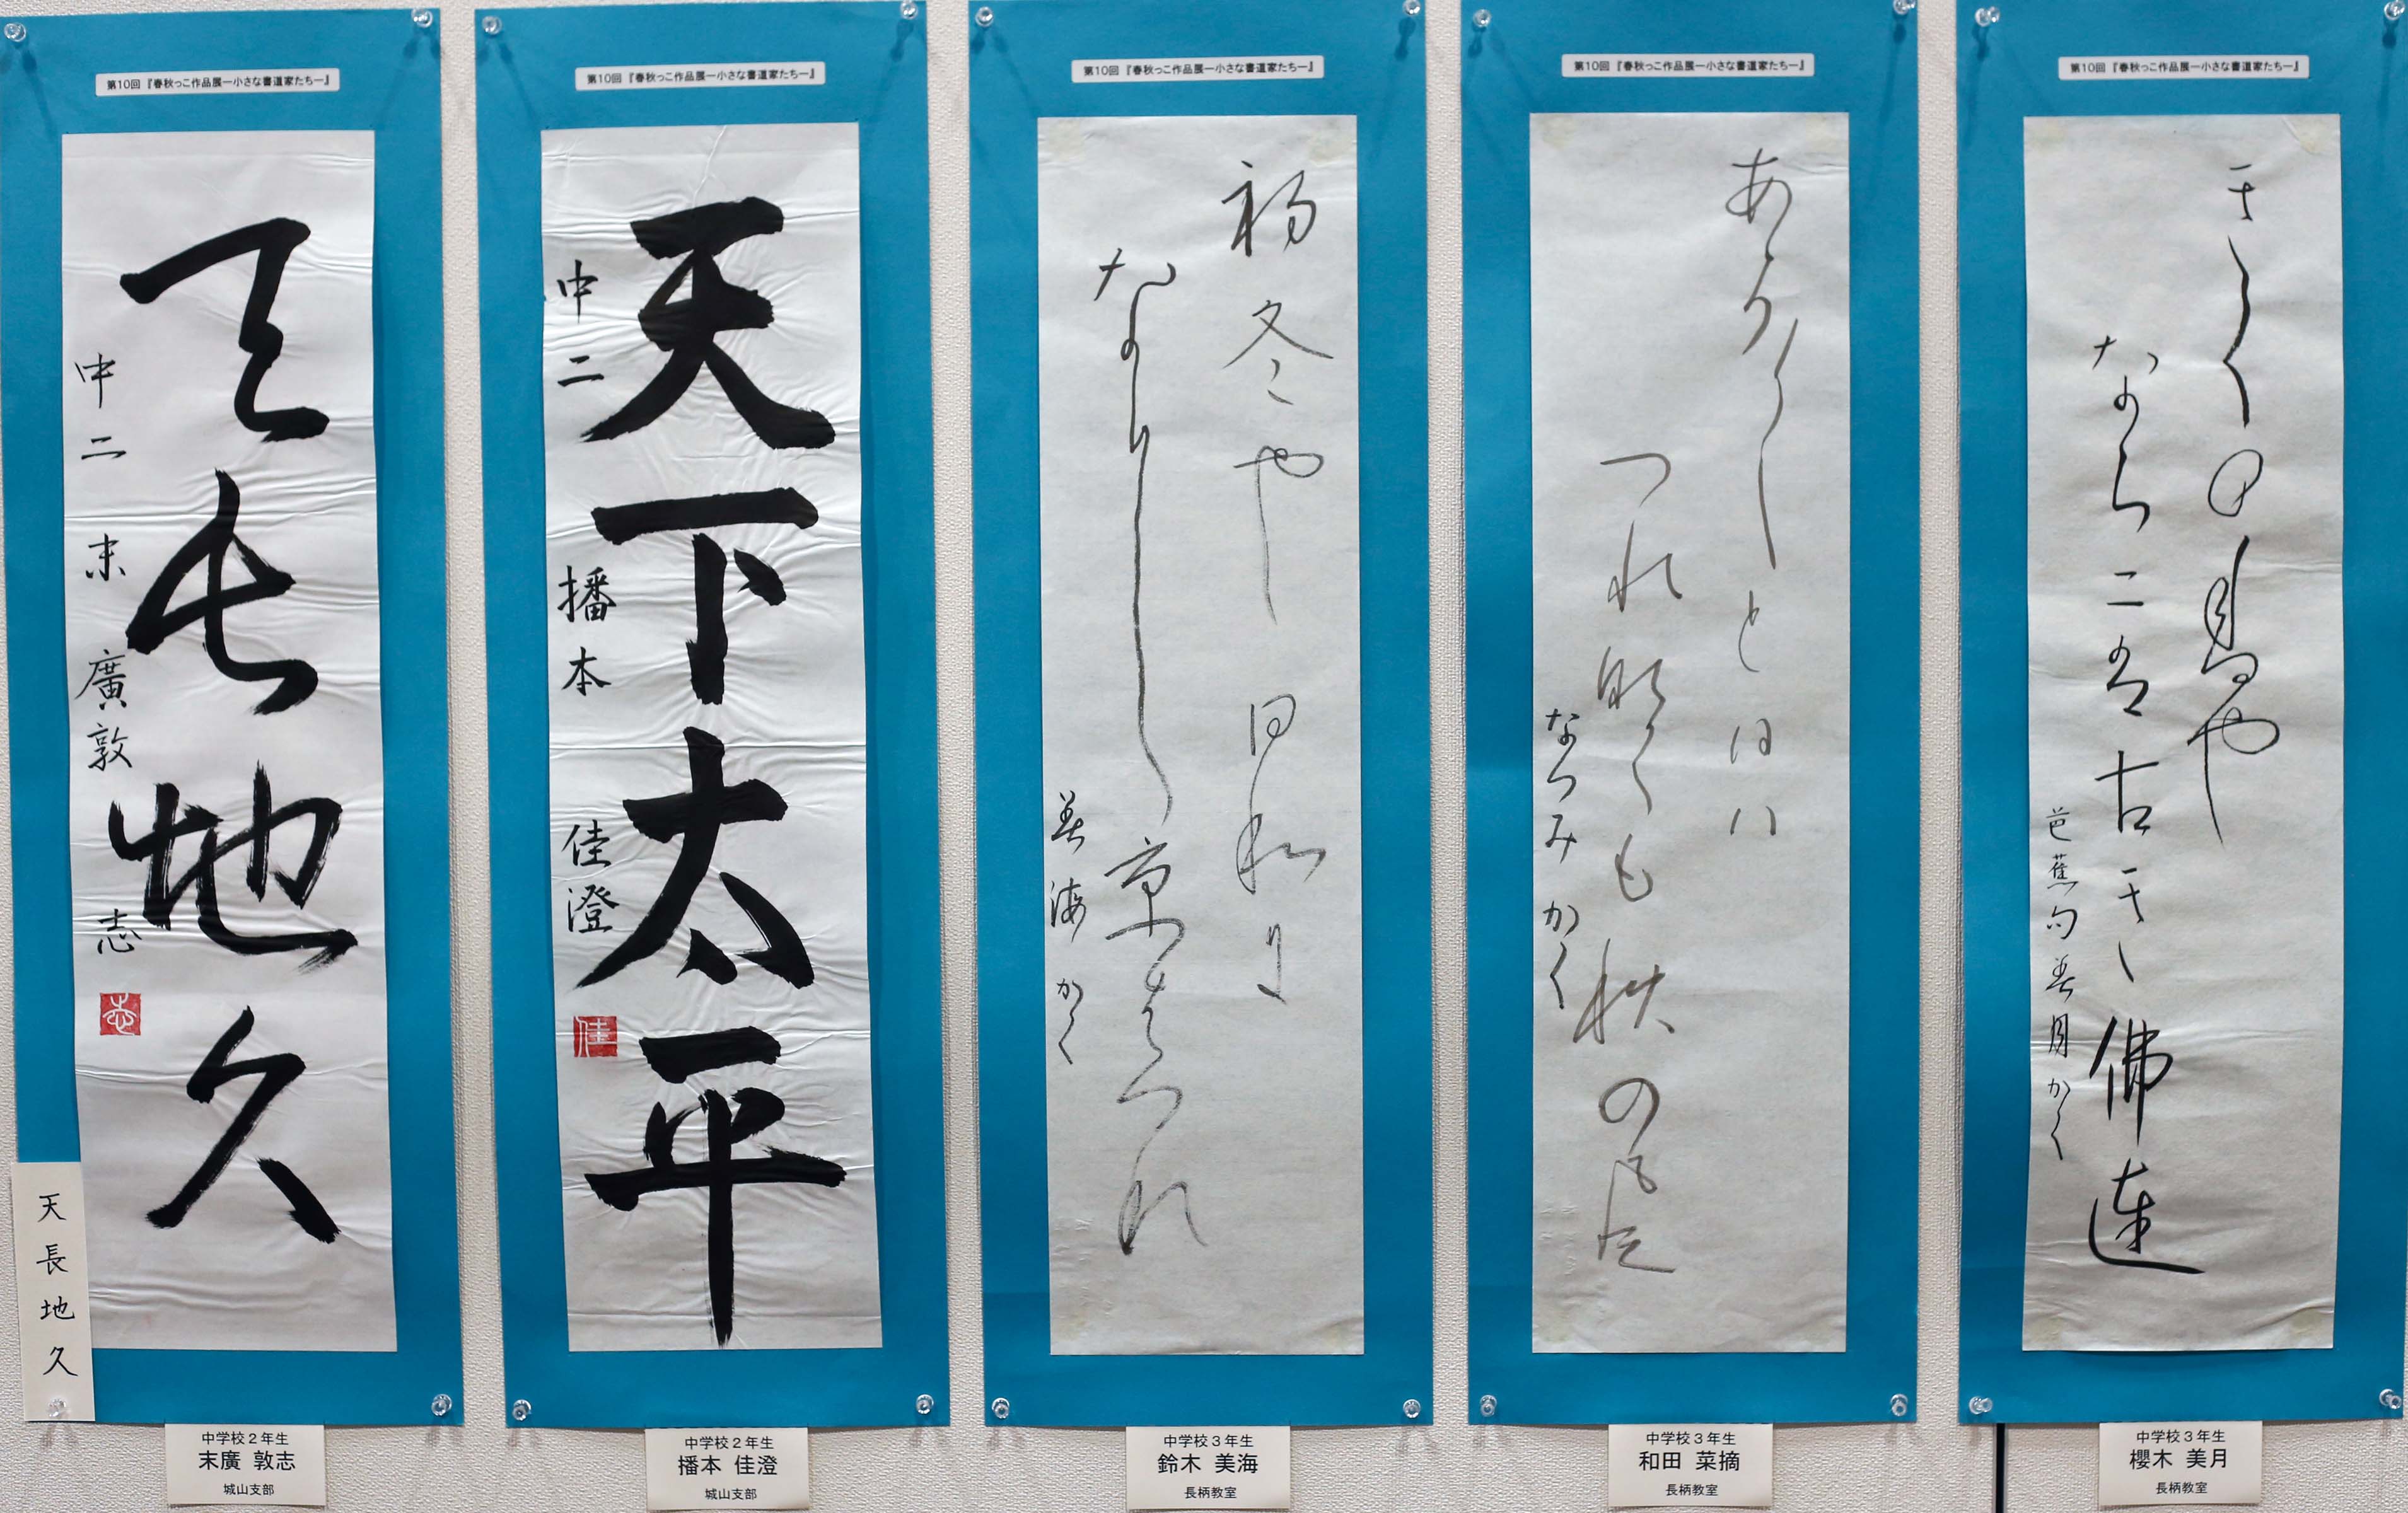 第10回『春秋っこ作品展―小さな書道家たち―』
天長地久
中二 末廣敦志
志
天長地久
中学校2年生
末廣 敦志
城山支部
第10回『春秋っこ作品展―小さな書道家たち―』
天下太平
中二 播本 佳澄
佳
中学校2年生
播本 佳澄
城山支部
第10回『春秋っこ作品展―小さな書道家たち―』
初冬や日和に
なりし京はつれ
美海かく
中学校3年生
鈴木 美海
長柄教室
第10回『春秋っこ作品展―小さな書道家たち―』
あか〱と日ハ
つれ那くも秋の風
なつみかく
中学校3年生
和田 菜摘
長柄教室
第10回『春秋っこ作品展―小さな書道家たち―』
きくの香や
なら二は古き佛達
芭蕉句 美月かく
中学校3年生
櫻木 美月
長柄教室